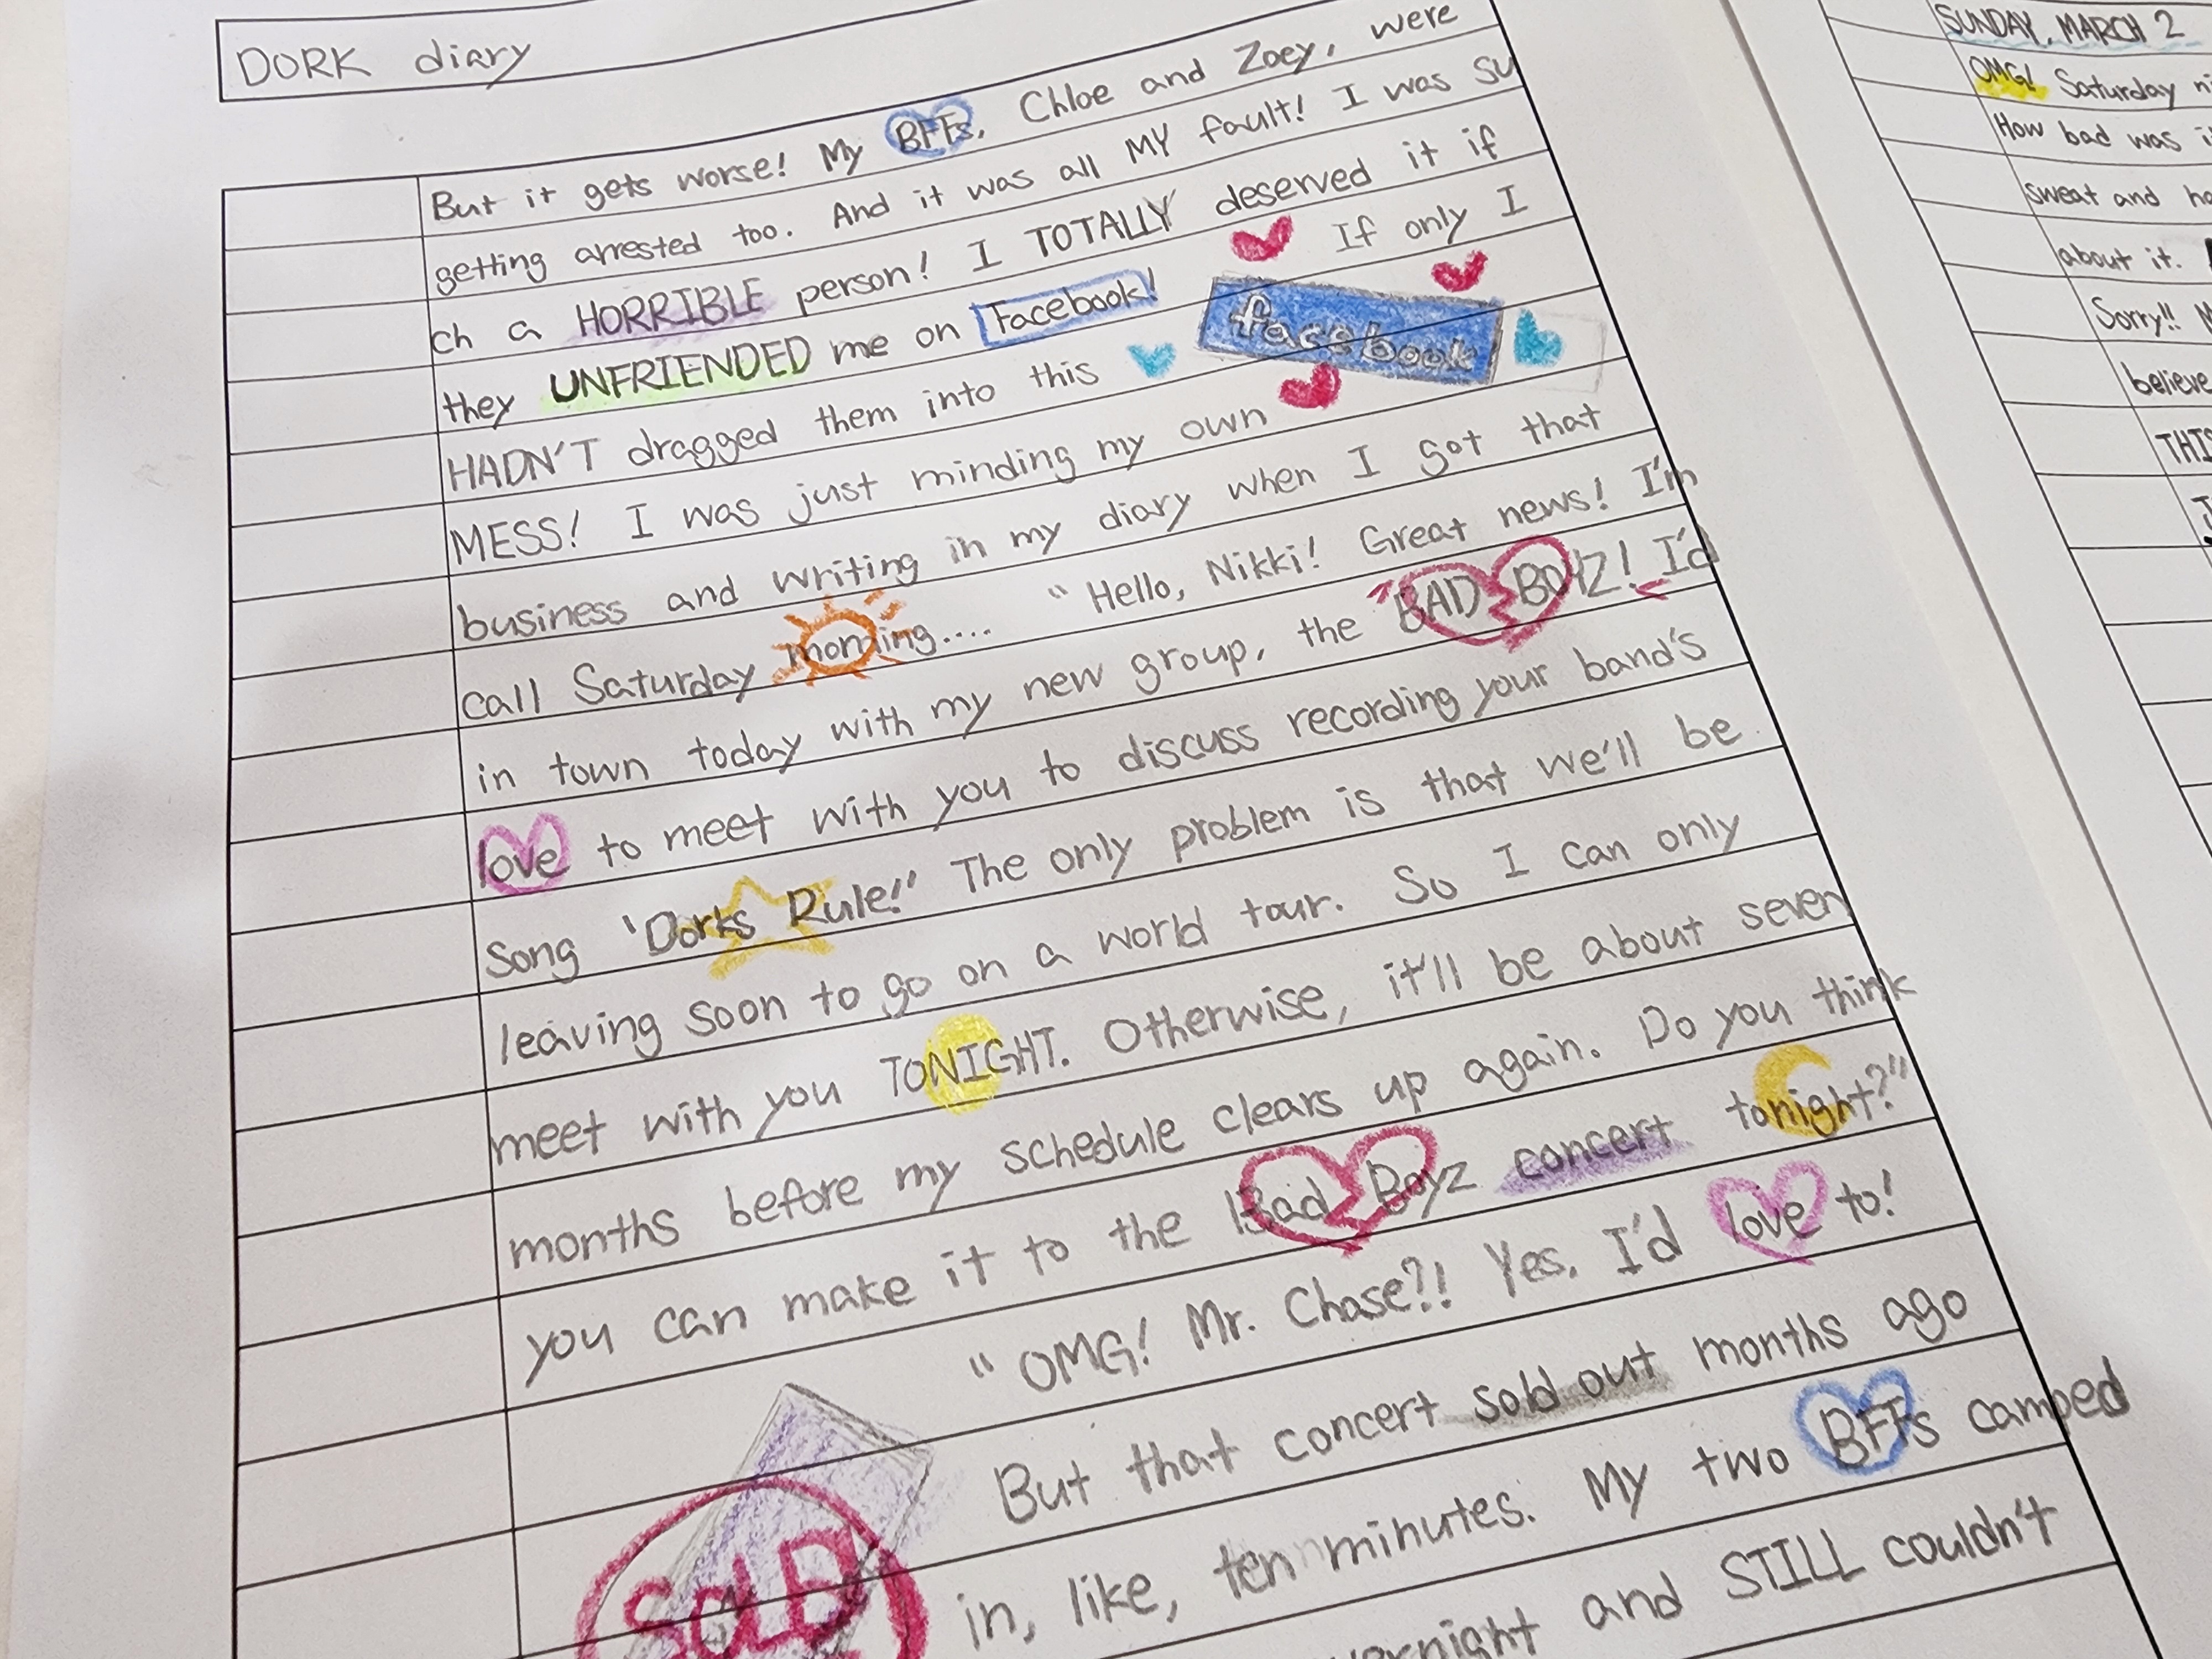 DORK diary
But it gets worse! My BFFs, Chloe and Zoey, were
getting arrested too. And it was all MY fault! I was su
ch a HORRIBLE person! I TOTALLY deserved it if
they UNFRIENDED me on Facebook! If only I
facebook
HADN'T dragged them into this
MESS! I was just minding my own
business and writing in my diary when I got that
call Saturday morning.... "Hello, Nikki! Great news! I'm
in town today with my new group, the "BAD BOYZ! I'd
love to meet with you to discuss recording your band's
Song 'Dorks Rule!' The only problem is that we'll be
leaving soon to go on a world tour. So I can only
meet with you TONIGHT. Otherwise, it'll be about seven
months before my schedule clears up again. Do you think
you can make it to the Bad Boyz concert tonight?"
"OMG! Mr. Chase?! Yes, I'd love to!
But that concert sold out months ago
SOLD
in, like, ten minutes. My two BFFs camped
and STILL couldn't
SUNDAY, MARCH 2
OMG! Saturday
How bad was
sweat and
about it.
Sorry!!
believe